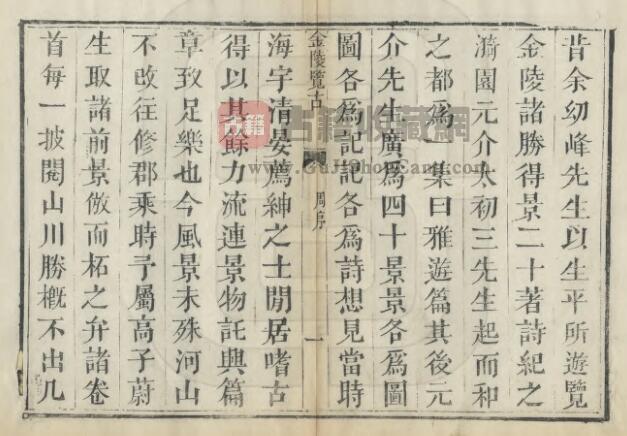 昔余幼峰先生以生平所遊覽
金陵諸勝得景二十著詩紀之
漪園元介太初三先生起而和
之都為一集曰雅遊篇其後元
介先生廣為四十景景各為圖
圖各為記記各為詩想見當時
金陵覽古
周序
一
海宇清晏薦紳之士閒居嗜古
得以其餘力流連景物託興篇
章致足樂也今風景未殊河山
不改往修郡乘時予屬高子蔚
生取諸前景倣而柘之弁諸卷
首每一披閱山川勝槪不出几
古籍
古籍收藏網
www.GuJiShouCang.com